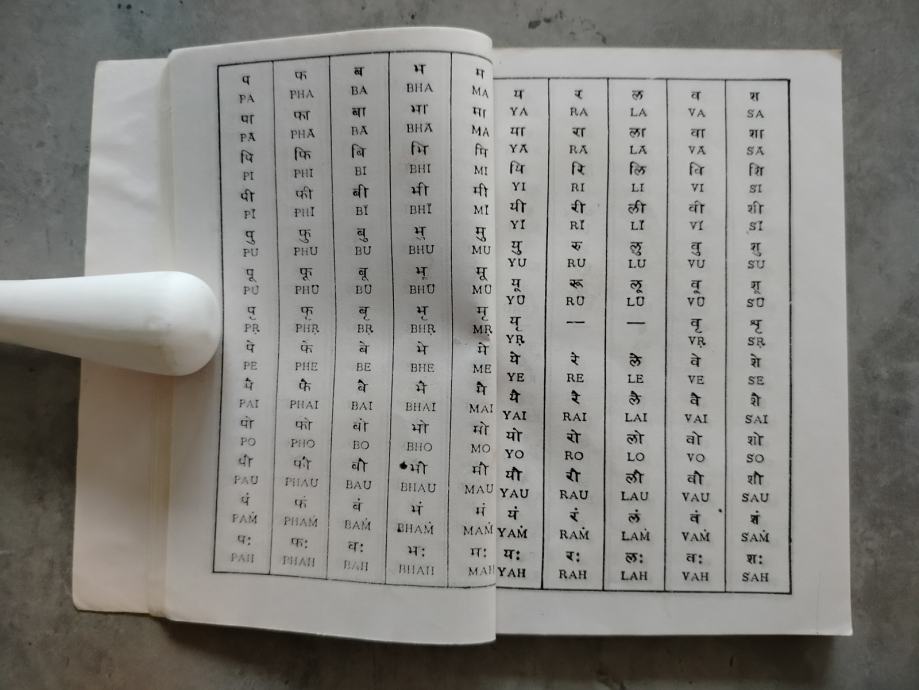 प फ ब भ म
PA PHA BA BHA MA
पा फा बा भा मा
PĀ PHĀ BĀ BHĀ MĀ
पि फि बि भि मि
PI PHI BI BHI MI
पी फी बी भी मी
PĪ PHĪ BĪ BHĪ MĪ
पु फु बु भु मु
PU PHU BU BHU MU
पू फू बू भू मू
PŪ PHŪ BŪ BHŪ MŪ
पृ फृ बृ भृ मृ
PṚ PHṚ BṚ BHṚ MṚ
पे फे बे भे मे
PE PHE BE BHE ME
पै फै बै भै मै
PAI PHAI BAI BHAI MAI
पो फो बो भो मो
PO PHO BO BHO MO
पौ फौ बौ भौ मौ
PAU PHAU BAU BHAU MAU
पं फं बं भं मं
PAṀ PHAṀ BAṀ BHAṀ MAṀ
पः फः वः भः मः
PAH PHAH BAH BHAH MAH
य र ल व श
YA RA LA VA SA
या रा ला वा शा
YĀ RĀ LĀ VĀ SĀ
यि रि लि वि शि
YI RI LI VI SI
यी री ली वी शी
YĪ RĪ LĪ VĪ SĪ
यु रु लु वु शु
YU RU LU VU SU
यू रू लू वू शू
YŪ RŪ LŪ VŪ SŪ
यृ — — वृ शृ
YṚ VṚ SṚ
ये रे ले वे शे
YE RE LE VE SE
यै रै लै वै शै
YAI RAI LAI VAI SAI
यो रो लो वो शो
YO RO LO VO SO
यौ रौ लौ वौ शौ
YAU RAU LAU VAU SAU
यं रं लं वं शं
YAṀ RAṀ LAṀ VAṀ SAṀ
यः रः लः वः शः
YAH RAH LAH VAH SAH